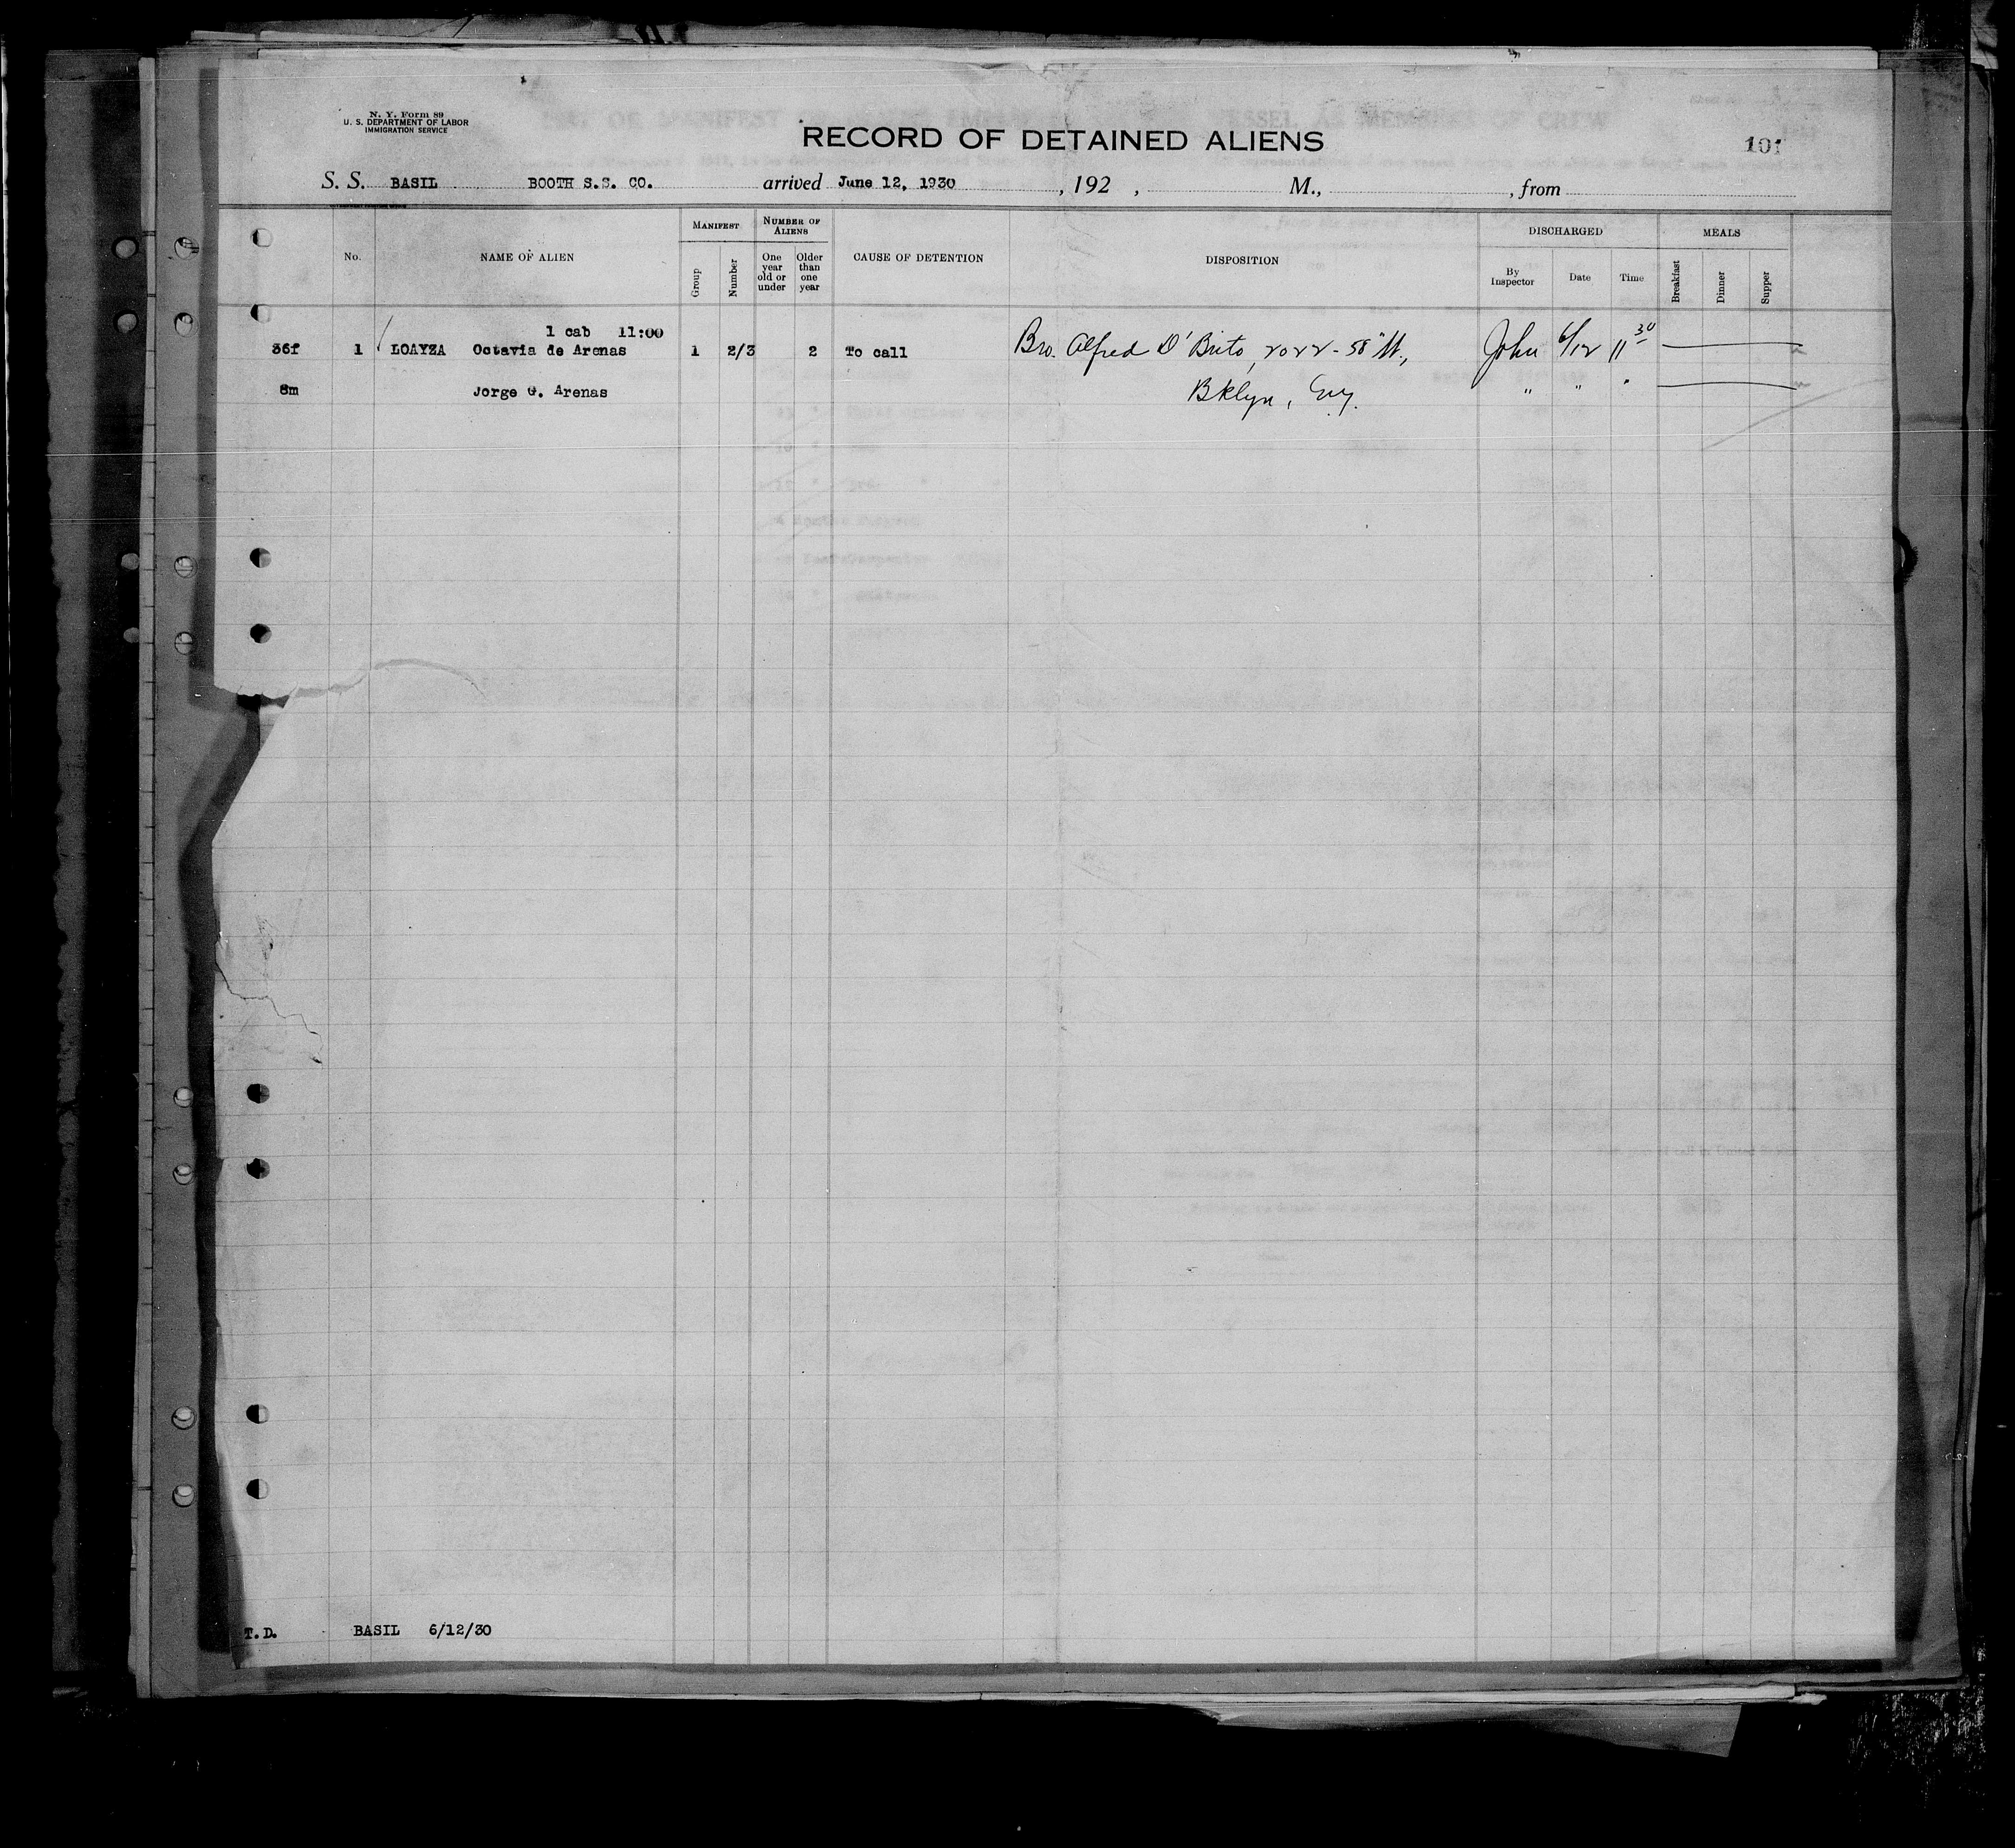 N. Y. Form 89
U. S. DEPARTMENT OF LABOR
IMMIGRATION SERVICE
RECORD OF DETAINED ALIENS
101
S. S. BASIL BOOTH S.S. CO. arrived June 12, 1930 , 192 , M., , from
No. NAME OF ALIEN MANIFEST Group Number NUMBER OF ALIENS One year old or under Older than one year CAUSE OF DETENTION DISPOSITION DISCHARGED By Inspector Date Time MEALS Breakfast Dinner Supper
1 cab 11:00
36f 1 LOAYZA Octavia de Arenas 1 2/3 2 To call Bro. Alfred D'Brito, 2022 - 58" St., John 6/12 11 30
8m Jorge G. Arenas Bklyn, " " "
T.D. BASIL 6/12/30